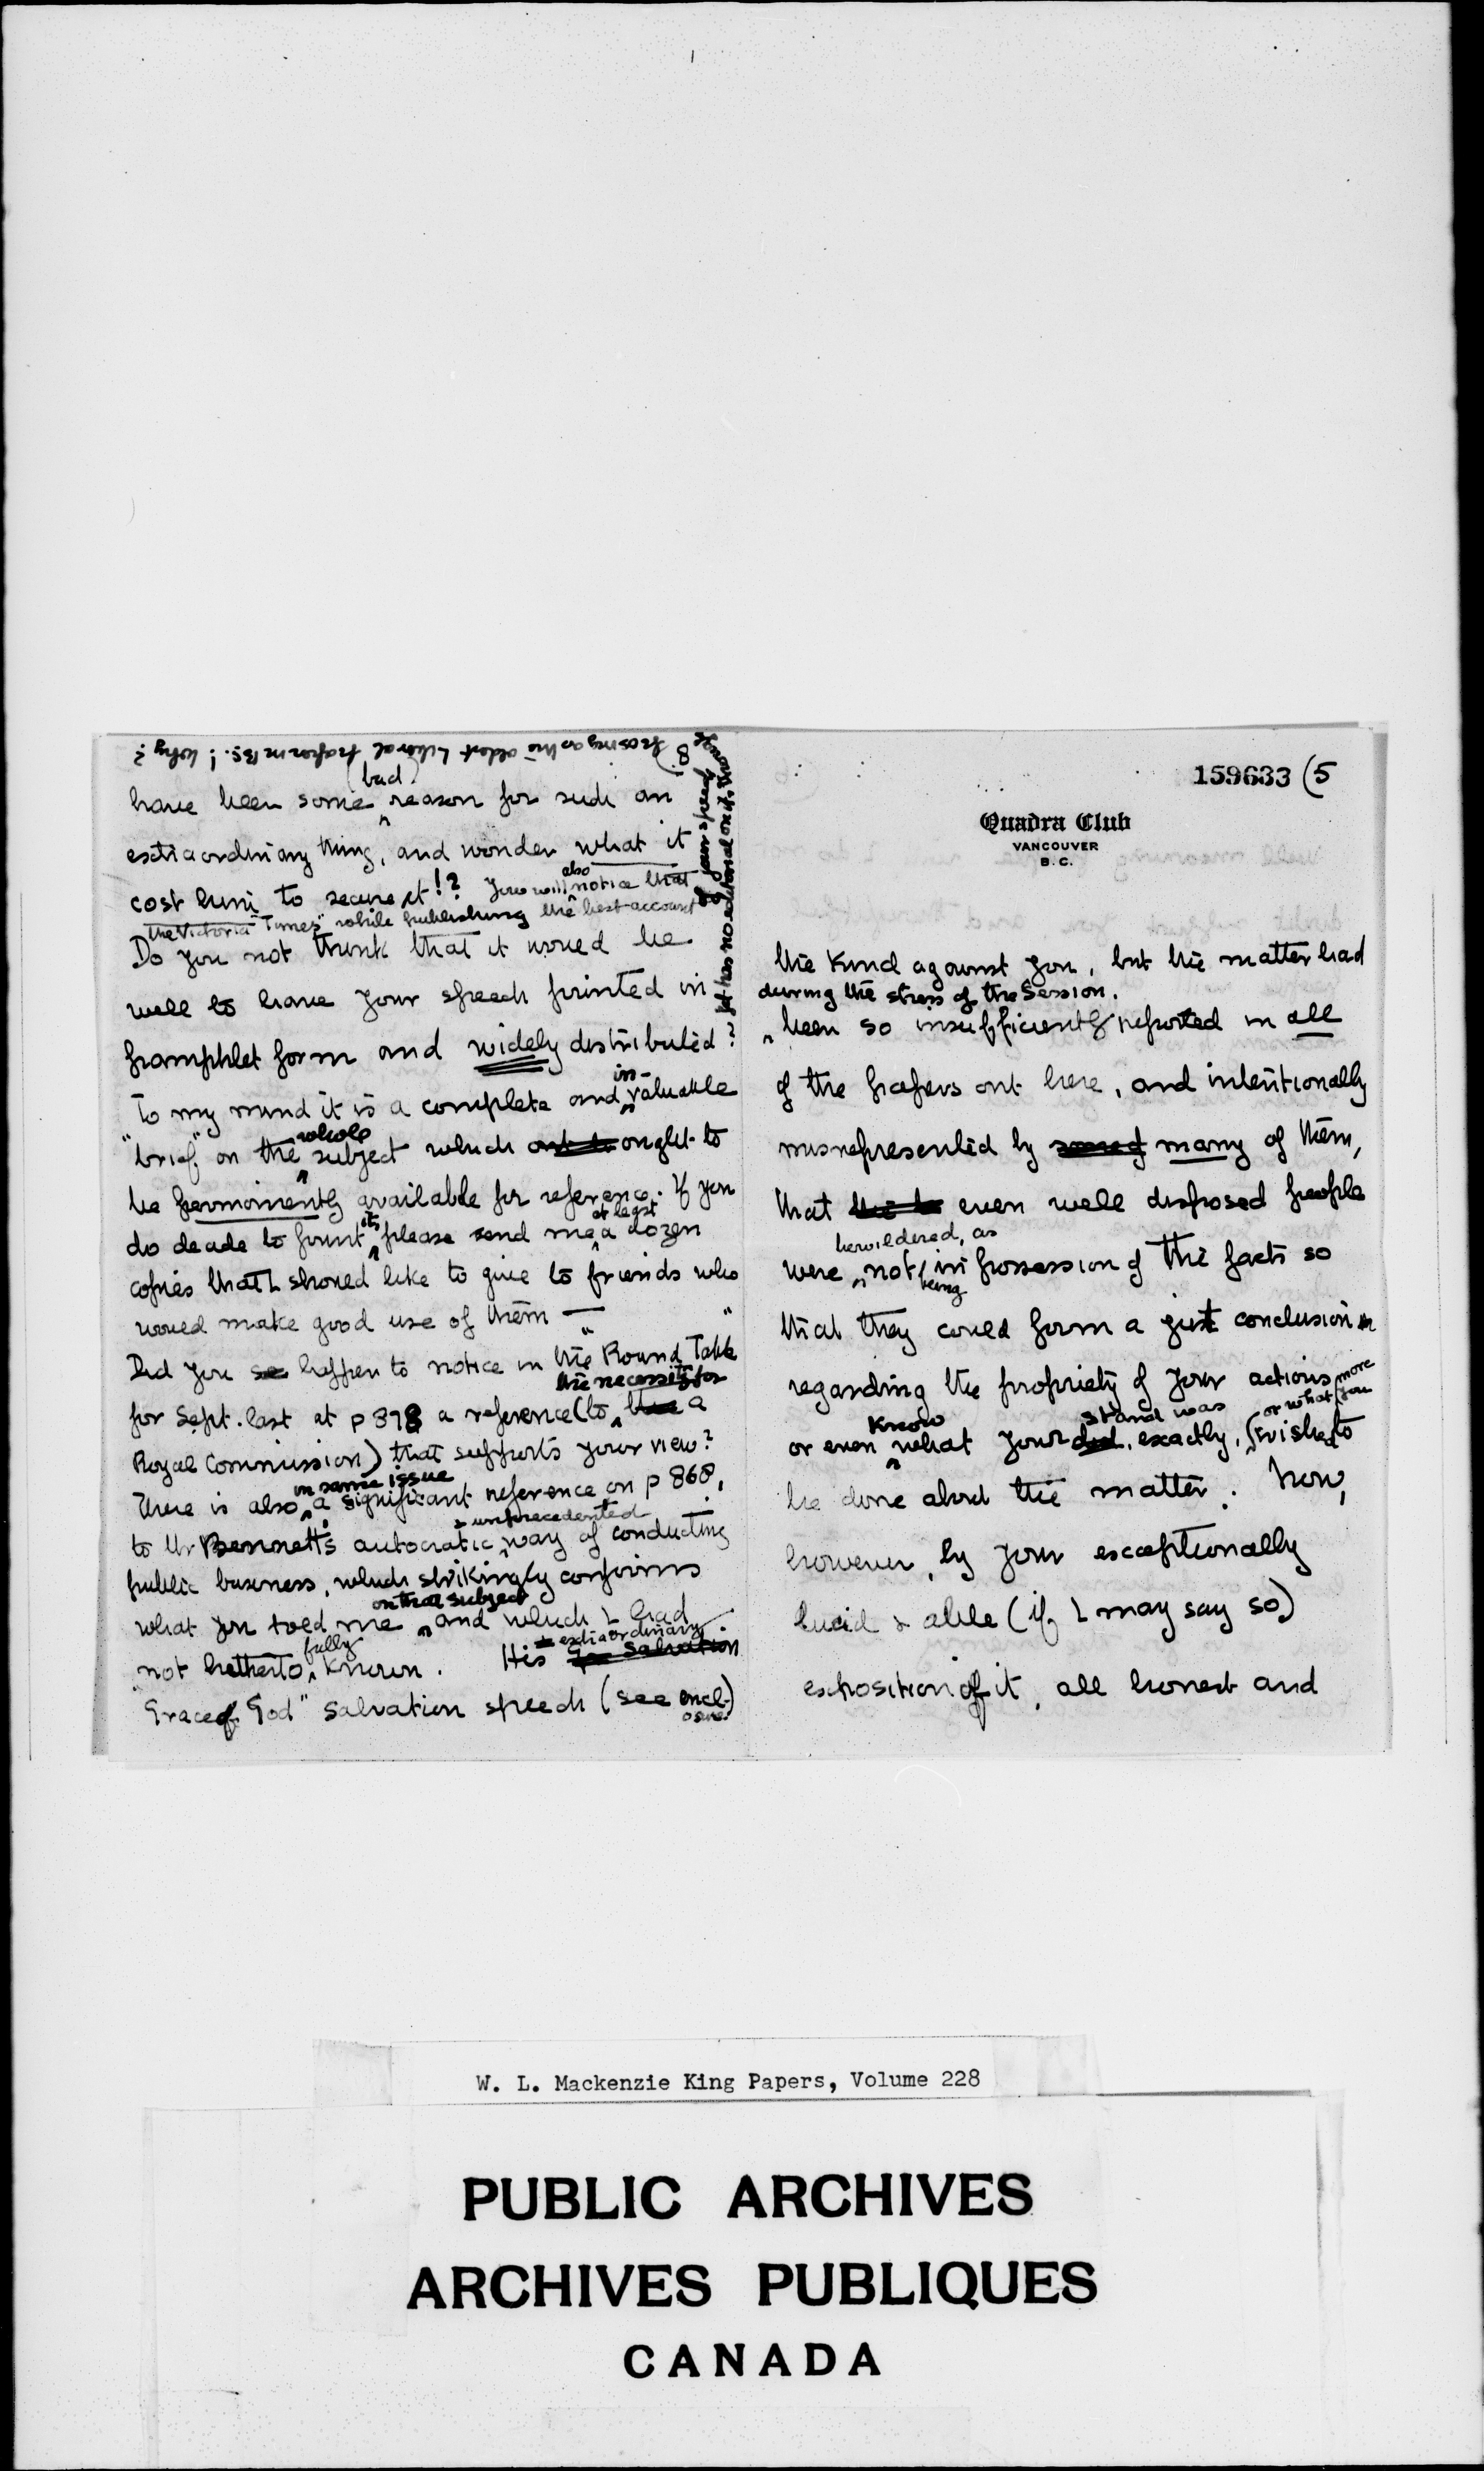 8)
have been some (bad) reason for such an
extraordinary thing, and wonder what it
cost him to secure it!? You will also notice that
the Victoria "Times" while publishing the best account
of your speech
yet has no editorial on it, thro
posing as the oldest Liberal paper in B.C.! Why?
Do you not think that it would be
well to have your speech printed in
pamphlet form and widely distributed?
To my mind it is a complete and in-valuable
"brief" on the whole subject which ought to
be permanently available for reference. If you
do decide to print it, please send me at least a dozen
copies that I should like to give to friends who
would make good use of them —
Did you happen to notice in "the Round Table"
for Sept. last at p 878 a reference (to the necessity for a
Royal Commission) that supports your view?
There is also in same issue a significant reference on p 868,
to Mr Bennett's autocratic & unprecedented way of conducting
public business, which strikingly confirms
what you told me on that subject and which I had
not hitherto fully known. His extraordinary
"Grace of God" Salvation speech (see encl-
osure)
159633 (5
Quadra Club
VANCOUVER
B. C.
the kind against you, but the matter had
during the stress of the Session.
been so insufficiently reported in all
of the papers out here, and intentionally
misrepresented by many of them,
that even well disposed people
were bewildered, as not being in possession of the facts so
that they could form a just conclusion
regarding the propriety of your actions
or even know what your stand was, exactly, (or what more you wished to
be done about the matter. Now,
however, by your exceptionally
lucid & able (if I may say so)
exposition of it, all honest and
W. L. Mackenzie King Papers, Volume 228
PUBLIC ARCHIVES
ARCHIVES PUBLIQUES
CANADA